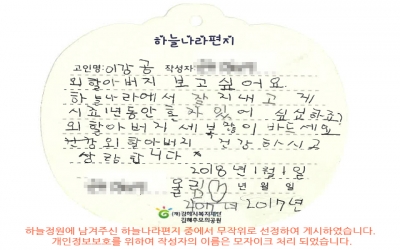 하늘나라편지
고인명:이강공 작성자:
외할아버지 보고 싶어요
하늘나라에서 잘지내고 계
시죠 년동안 혼자 있어 심심하죠?
외할아버지 새복많이 바드세요
건강 외할아버지 건강하시고
사랑합니다*
2018년1월1일
올림 년 월 일
2017년
(재)김해시복지재단
김해추모의공원
하늘정원에 남겨주신 하늘나라편지 중에서 무작위로 선정하여 게시하였습니다.
개인정보보호를 위하여 작성자의 이름은 모자이크 처리 되었습니다.